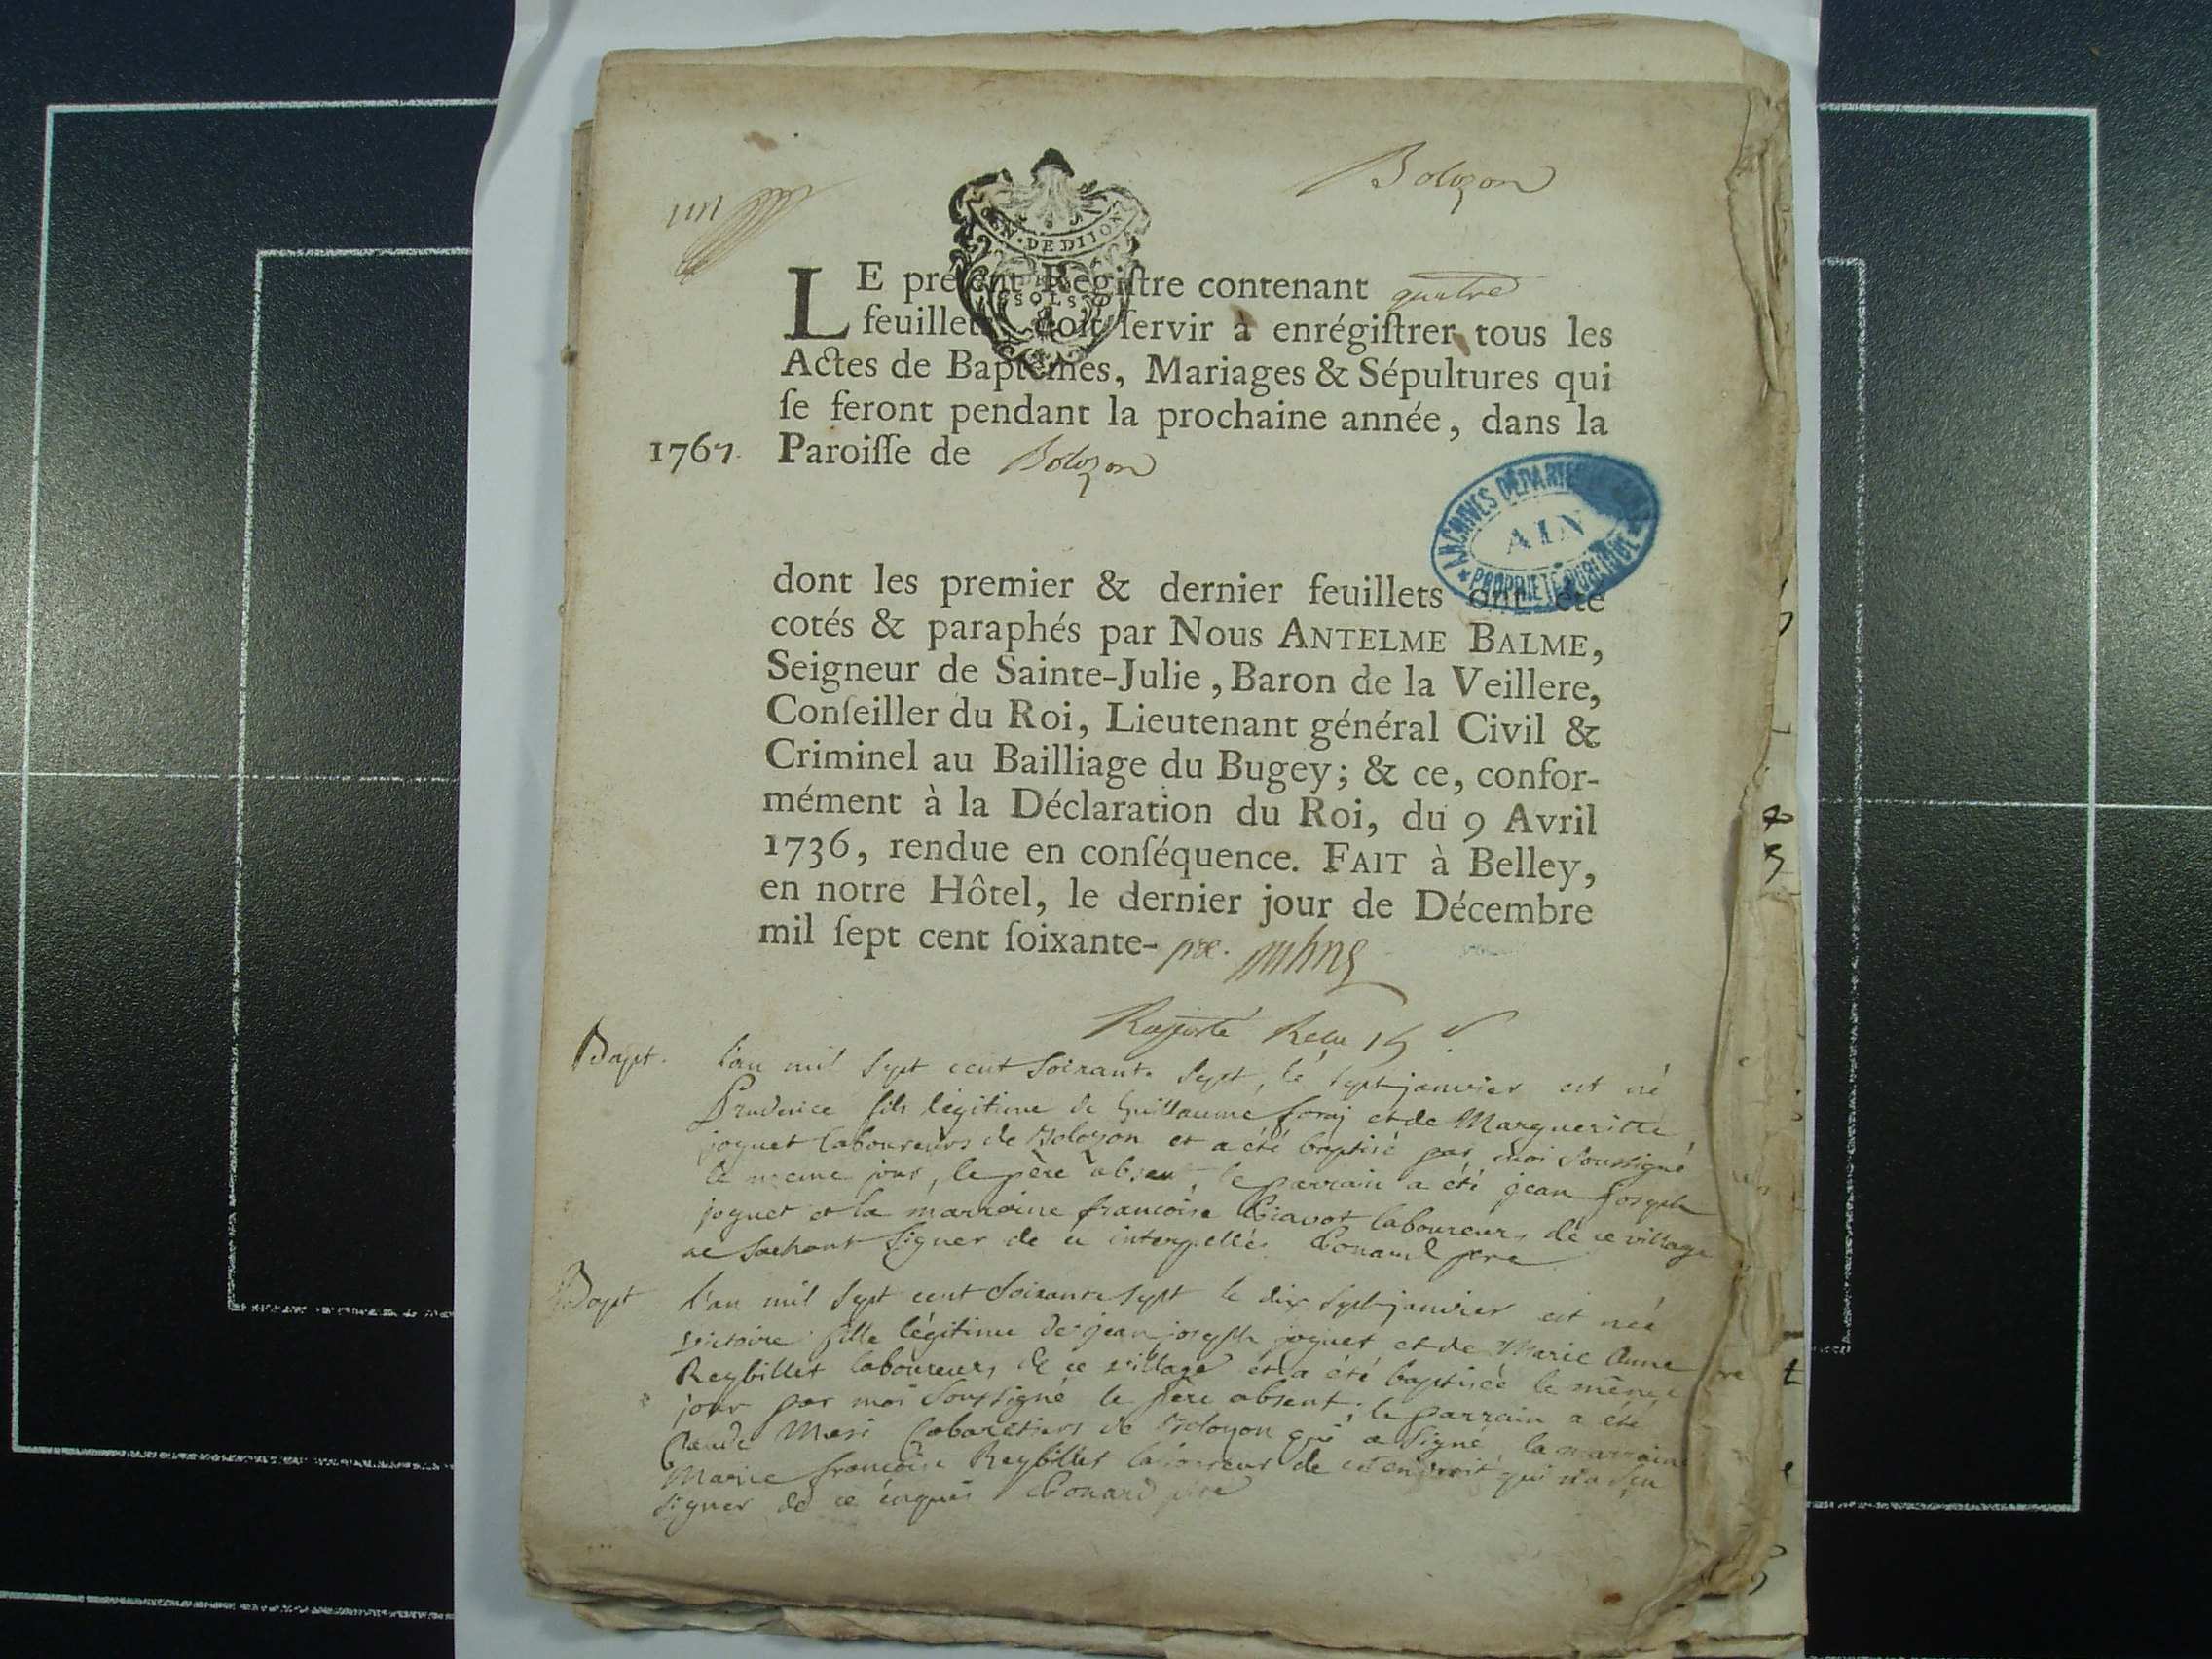 Bolozon
GN. DE DIJON
SOLS
LE préſent Regiſtre contenant quatre
feuillets, doit ſervir à enrégiſtrer tous les
Actes de Baptêmes, Mariages & Sépultures qui
ſe feront pendant la prochaine année, dans la
1767. Paroiſſe de Bolozon
ARCHIVES DÉPARTEMENTALES
AIN
PROPRIÉTÉ PUBLIQUE
dont les premier & dernier feuillets ont été
cotés & paraphés par Nous ANTELME BALME,
Seigneur de Sainte-Julie, Baron de la Veillere,
Conſeiller du Roi, Lieutenant général Civil &
Criminel au Bailliage du Bugey; & ce, confor-
mément à la Déclaration du Roi, du 9 Avril
1736, rendue en conſéquence. FAIT à Belley,
en notre Hôtel, le dernier jour de Décembre
mil ſept cent ſoixante-
Bapt. L'an mil sept cent soixante sept, le sept janvier est né
Prudence fils légitime de Guillaume foraj et de Margueritte
joguet laboureurs de Bolozon et a été baptisé par moi soussigné
le meme jour, le père absent, le parrain a été jean joseph
joguet et la marraine francoise laboureurs de ce village
ne sachant signer de ce interpellés. pre
Bapt L'an mil sept cent soixante sept le dix sept janvier est née
victoire fille légitime de jean joseph joguet et de Marie Anne
Reybillet laboureurs de ce village et a été baptisée le même
jour par moi soussigné le père absent, le parrain a été
Claude Mari Cabaretiers de Bolozon qui a signé, la marraine
Marie francoise Reybillet laboureur de cet endroit qui n'a sçu
signer de ce enquis